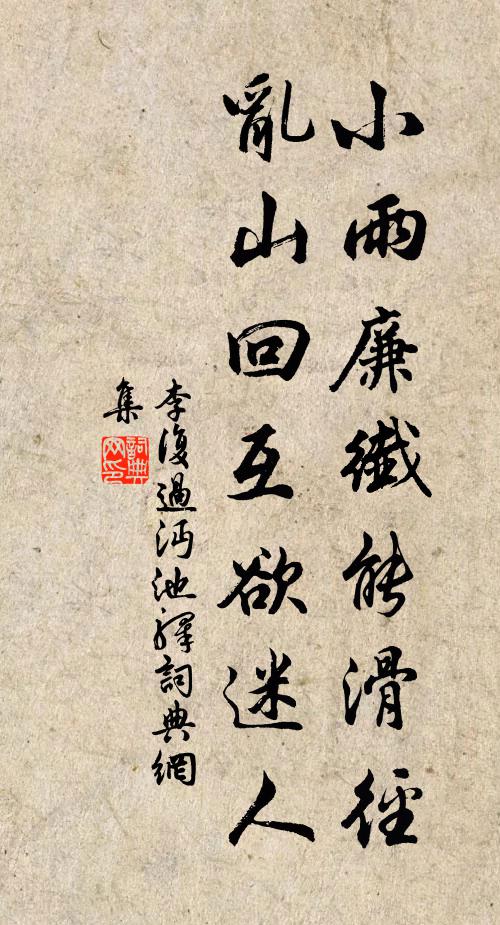 小雨廉纖能滑徑
亂山回互欲迷人
李復過沔池驛詞典網
集
詞典
网印